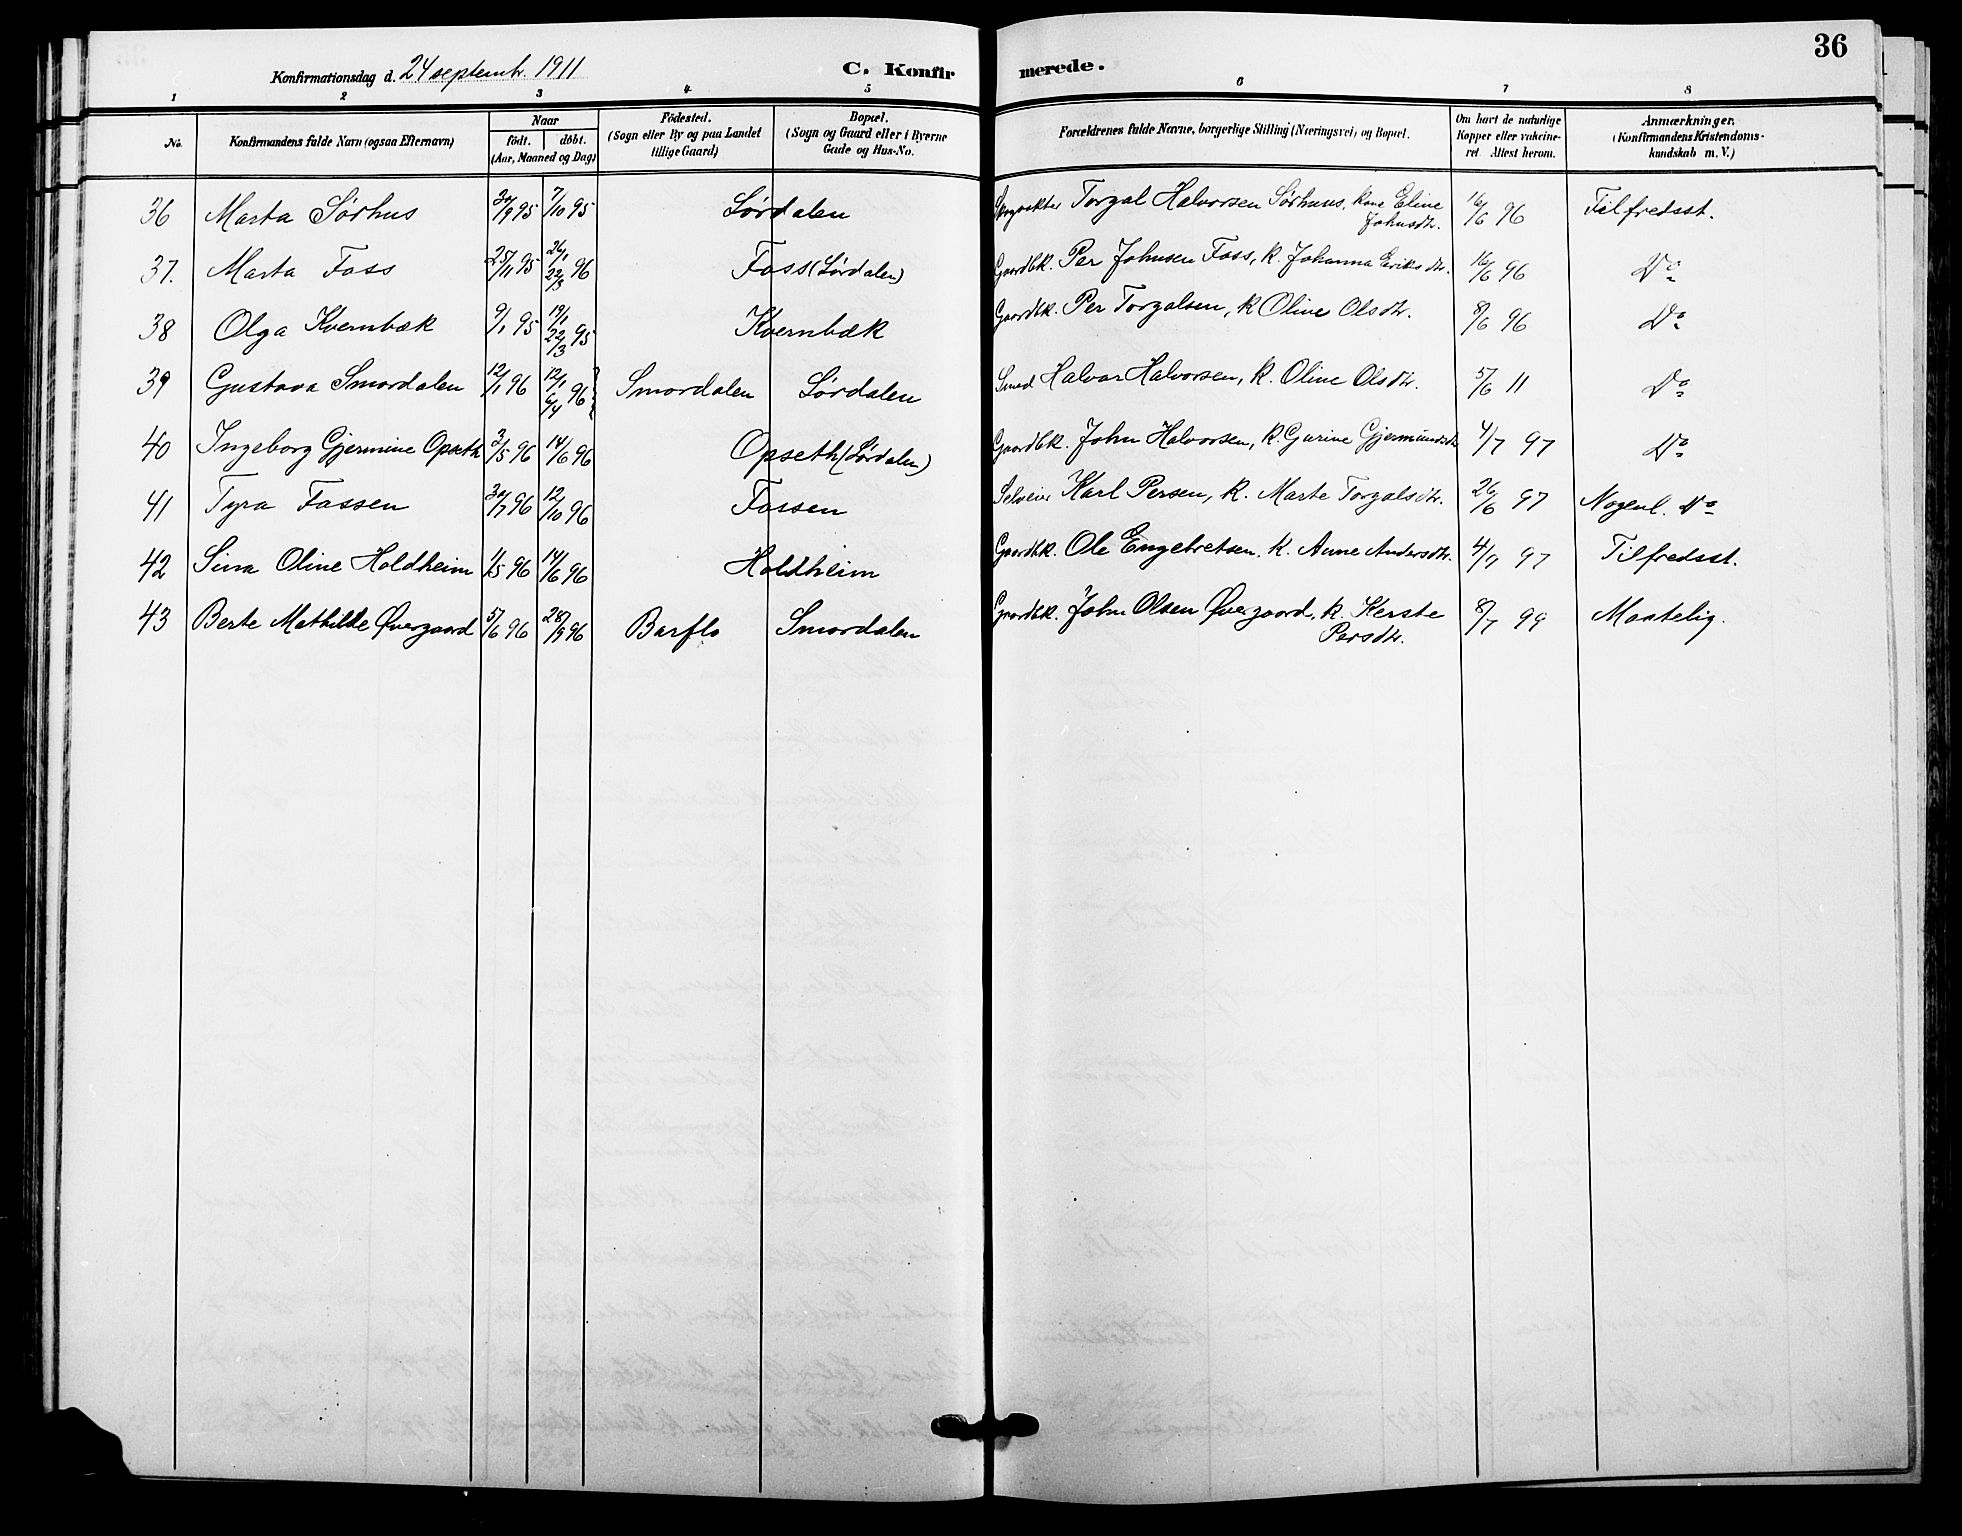 36
Konfirmationsdag d. 24 septembr. 1911 C. Konfirmerede.
1 2 3 4 5 6 7 8
No. Konfirmandens fulde Navn (ogsaa Efternavn) Naar födt. döbt. (Aar, Maaned og Dag) Födested. (Sogn eller By og paa Landet tillige Gaard) Bopæl. (Sogn og Gaard eller i Byerne Gade og Hus-No. Forældrenes fulde Navne, borgerlige Stilling (Næringsvei) og Bopæl. Om havt de naturlige Kopper eller vakcineret. Attest herom. Anmærkninger. (Konfirmandens Kristendomskundskab m. V.)
36 Marta Sørhus 30/9 95 7/10 95 Sørdalen Torgal Halvorsen Sørhuus, kone Eline Johnsdtr. 16/6 96 Tilfredsst.
37. Marta Foss 25/11 95 26/1 22/3 96 Foss (Sørdalen) Gaardbk. Per Johnsen Foss, k. Johanna Eriksdtr. 16/6 96 Do
38 Olga Kvernbæk 9/1 95 19/1 22/3 95 Kvernbæk Gaardbk. Per Torgalsen, k Oline Olsdtr. 8/6 96 Do
39 Gustava Smordalen 12/1 96 12/1 6/4 96 Smordalen Sørdalen Smed Halvor Halvorsen, k. Oline Olsdtr. 5/6 11 Do
40 Ingeborg Gjermine Opseth 3/5 96 14/6 96 Opseth (Sørdalen) Gaardbk. John Halvorsen, k. Gurine Gjermundsdtr 4/7 97 Do
41 Tyra Fossen 30/7 96 12/10 96 Fossen Selveier Karl Persen, k. Marte Torgalsdtr. 26/6 97 Nogenl. Do
42 Sina Oline Holdheim 1/5 96 14/6 96 Holdheim Gaardbk. Ole Engebretsen, k. Anne Andersdtr. 4/7 97 Tilfredsst.
43 Berte Mathilde Øvergaard 5/6 96 28/9 96 Barflo Smordalen Gaardbk. John Olsen Øvergaard, k. Kerste Persdtr. 8/7 99 Maatelig.